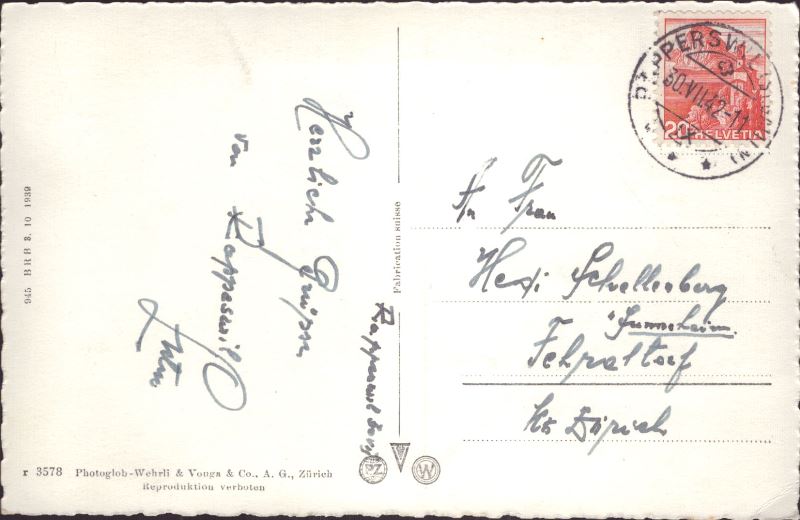 Herzliche Grüsse
von Rapperswil
945 BRB 3. 10 1939
Fabrication suisse
Rapperswil
r 3578 Photoglob-Wehrli & Vouga & Co., A. G., Zürich
Reproduktion verboten
PZ
W
RAPPERSWIL (ST. GALLEN)
30.VII.42-11
20 HELVETIA
An Frau
Hedi Schellenberg
"Sunneheim"
Fehraltorf
Kt Zürich